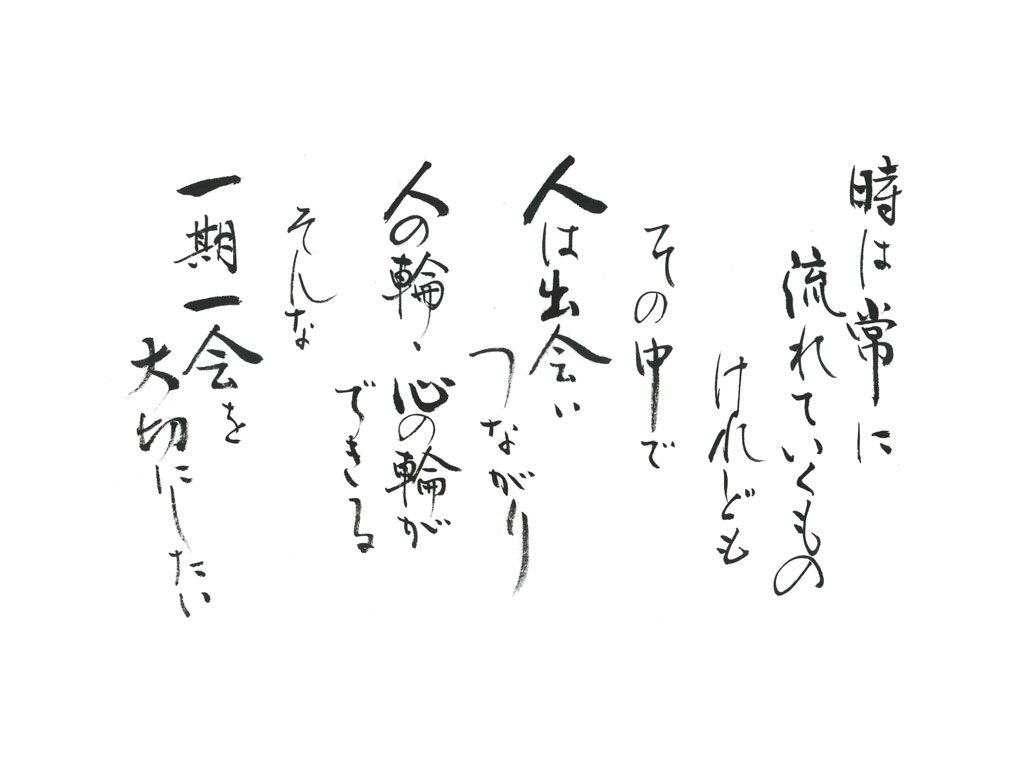 時は常に
流れていくもの
けれども
その中で
人は出会い
つながり
人の輪、心の輪が
できる
そんな
一期一会を
大切にしたい